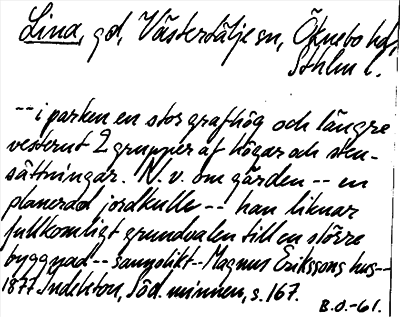 Lina, gd, Västertälje sn, Öknebo hd,
Sthlm l.
-- i parken en stor grafhög och längre
vesterut 2 grupper af högar och sten-
sättningar. N.v. om gården -- en
planerad jordkulle -- han liknar
fullkomligt grundvalen till en större
byggnad -- sannolikt -- Magnus Erikssons hus --
1877 Indebetou, Söd. minnen, s. 167.
B.O.-61.